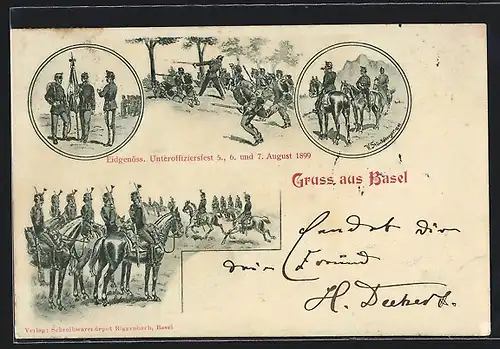 Eidgenöss. Unteroffiziersfest 5., 6. und 7. August 1899
Gruss aus Basel
sendet dir
dein Freund
H.
Verlag: Schreibwarendepot Riggenbach, Basel